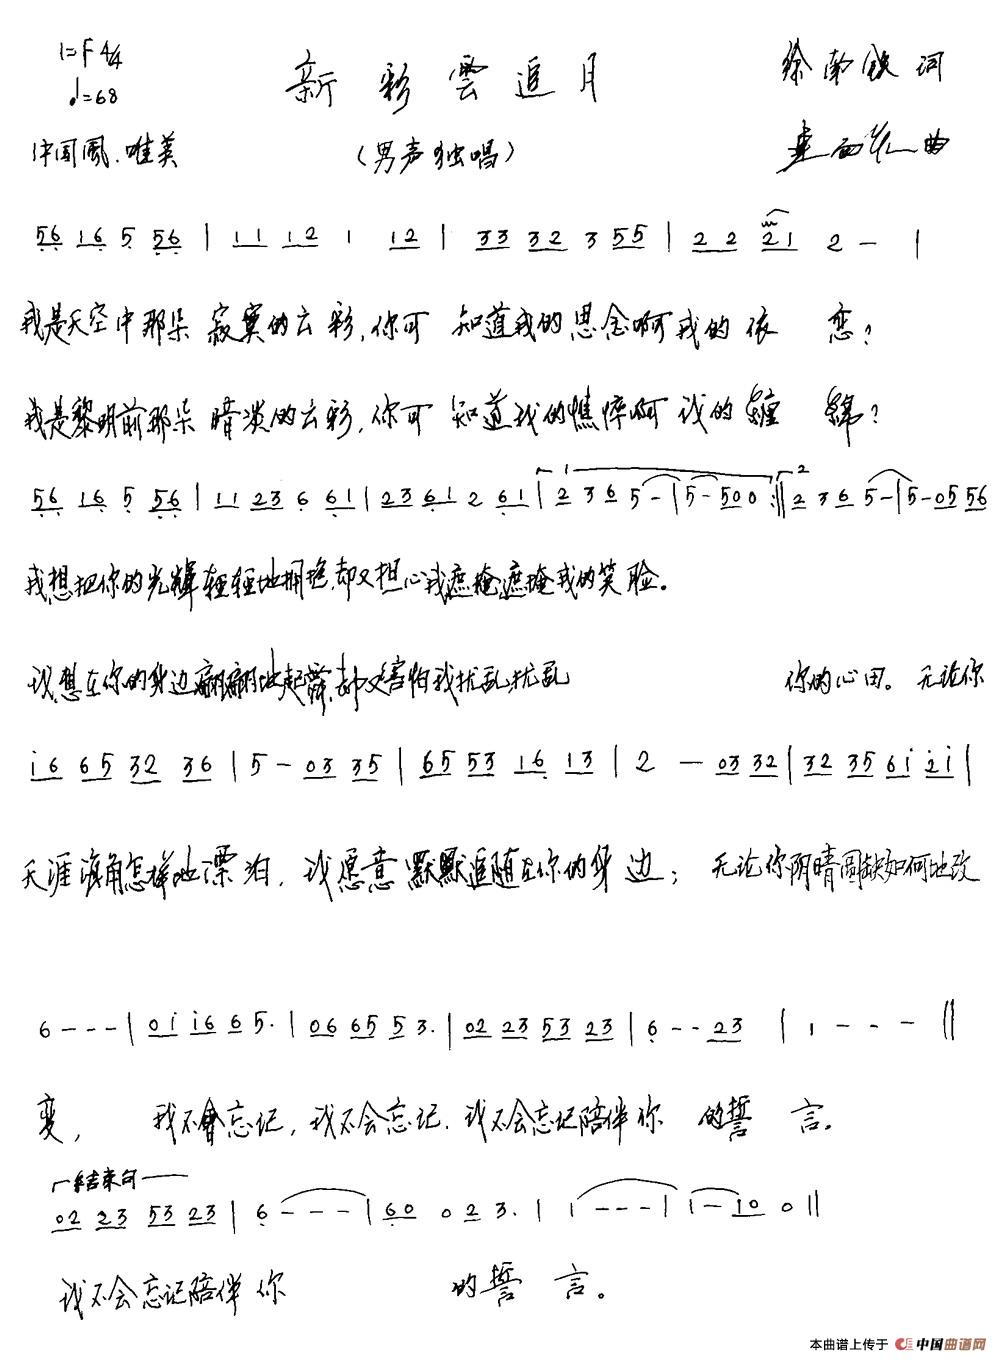 1=F 4/4
♩=68
新彩雲追月
徐南铁 词
曲
中国風.唯美
（男声独唱）
56 16 5 56 | 11 12 1 12 | 33 32 3 55 | 22 21 2 - |
我是天空中那朵寂寞的云彩,你可知道我的思念啊我的依恋?
我是黎明前那朵暗淡的云彩,你可知道我的憔悴啊我的纏綿?
56 16 5 56 | 11 23 6 61 | 23 61 2 61 | 1 2 3 6 5 - | 5 - 500 :‖ 2 2 3 6 5 - | 5 - 05 56
我想把你的光輝轻轻地拥抱,却又担心我遮掩遮掩我的笑脸。
我想在你的身边翩翩地起舞,却又害怕我扰乱扰乱 你的心田。无论你
i6 65 32 36 | 5 - 03 35 | 65 53 16 13 | 2 - 03 32 | 32 35 6i 2i |
天涯海角怎样地漂泊,我愿意默默追随在你的身边; 无论你阴晴圆缺如何地改
6 - - - | 0i i6 6 5. | 06 65 5 3. | 02 23 53 23 | 6 - - 23 | 1 - - - ‖
变, 我不會忘记,我不会忘记.我不会忘记陪伴你 的誓言。
结束句
02 23 53 23 | 6 - - - | 60 0 2 3. | 1 - - - | 1 - 10 0 ‖
我不会忘记陪伴你 的誓言。
本曲谱上传于 中国曲谱网